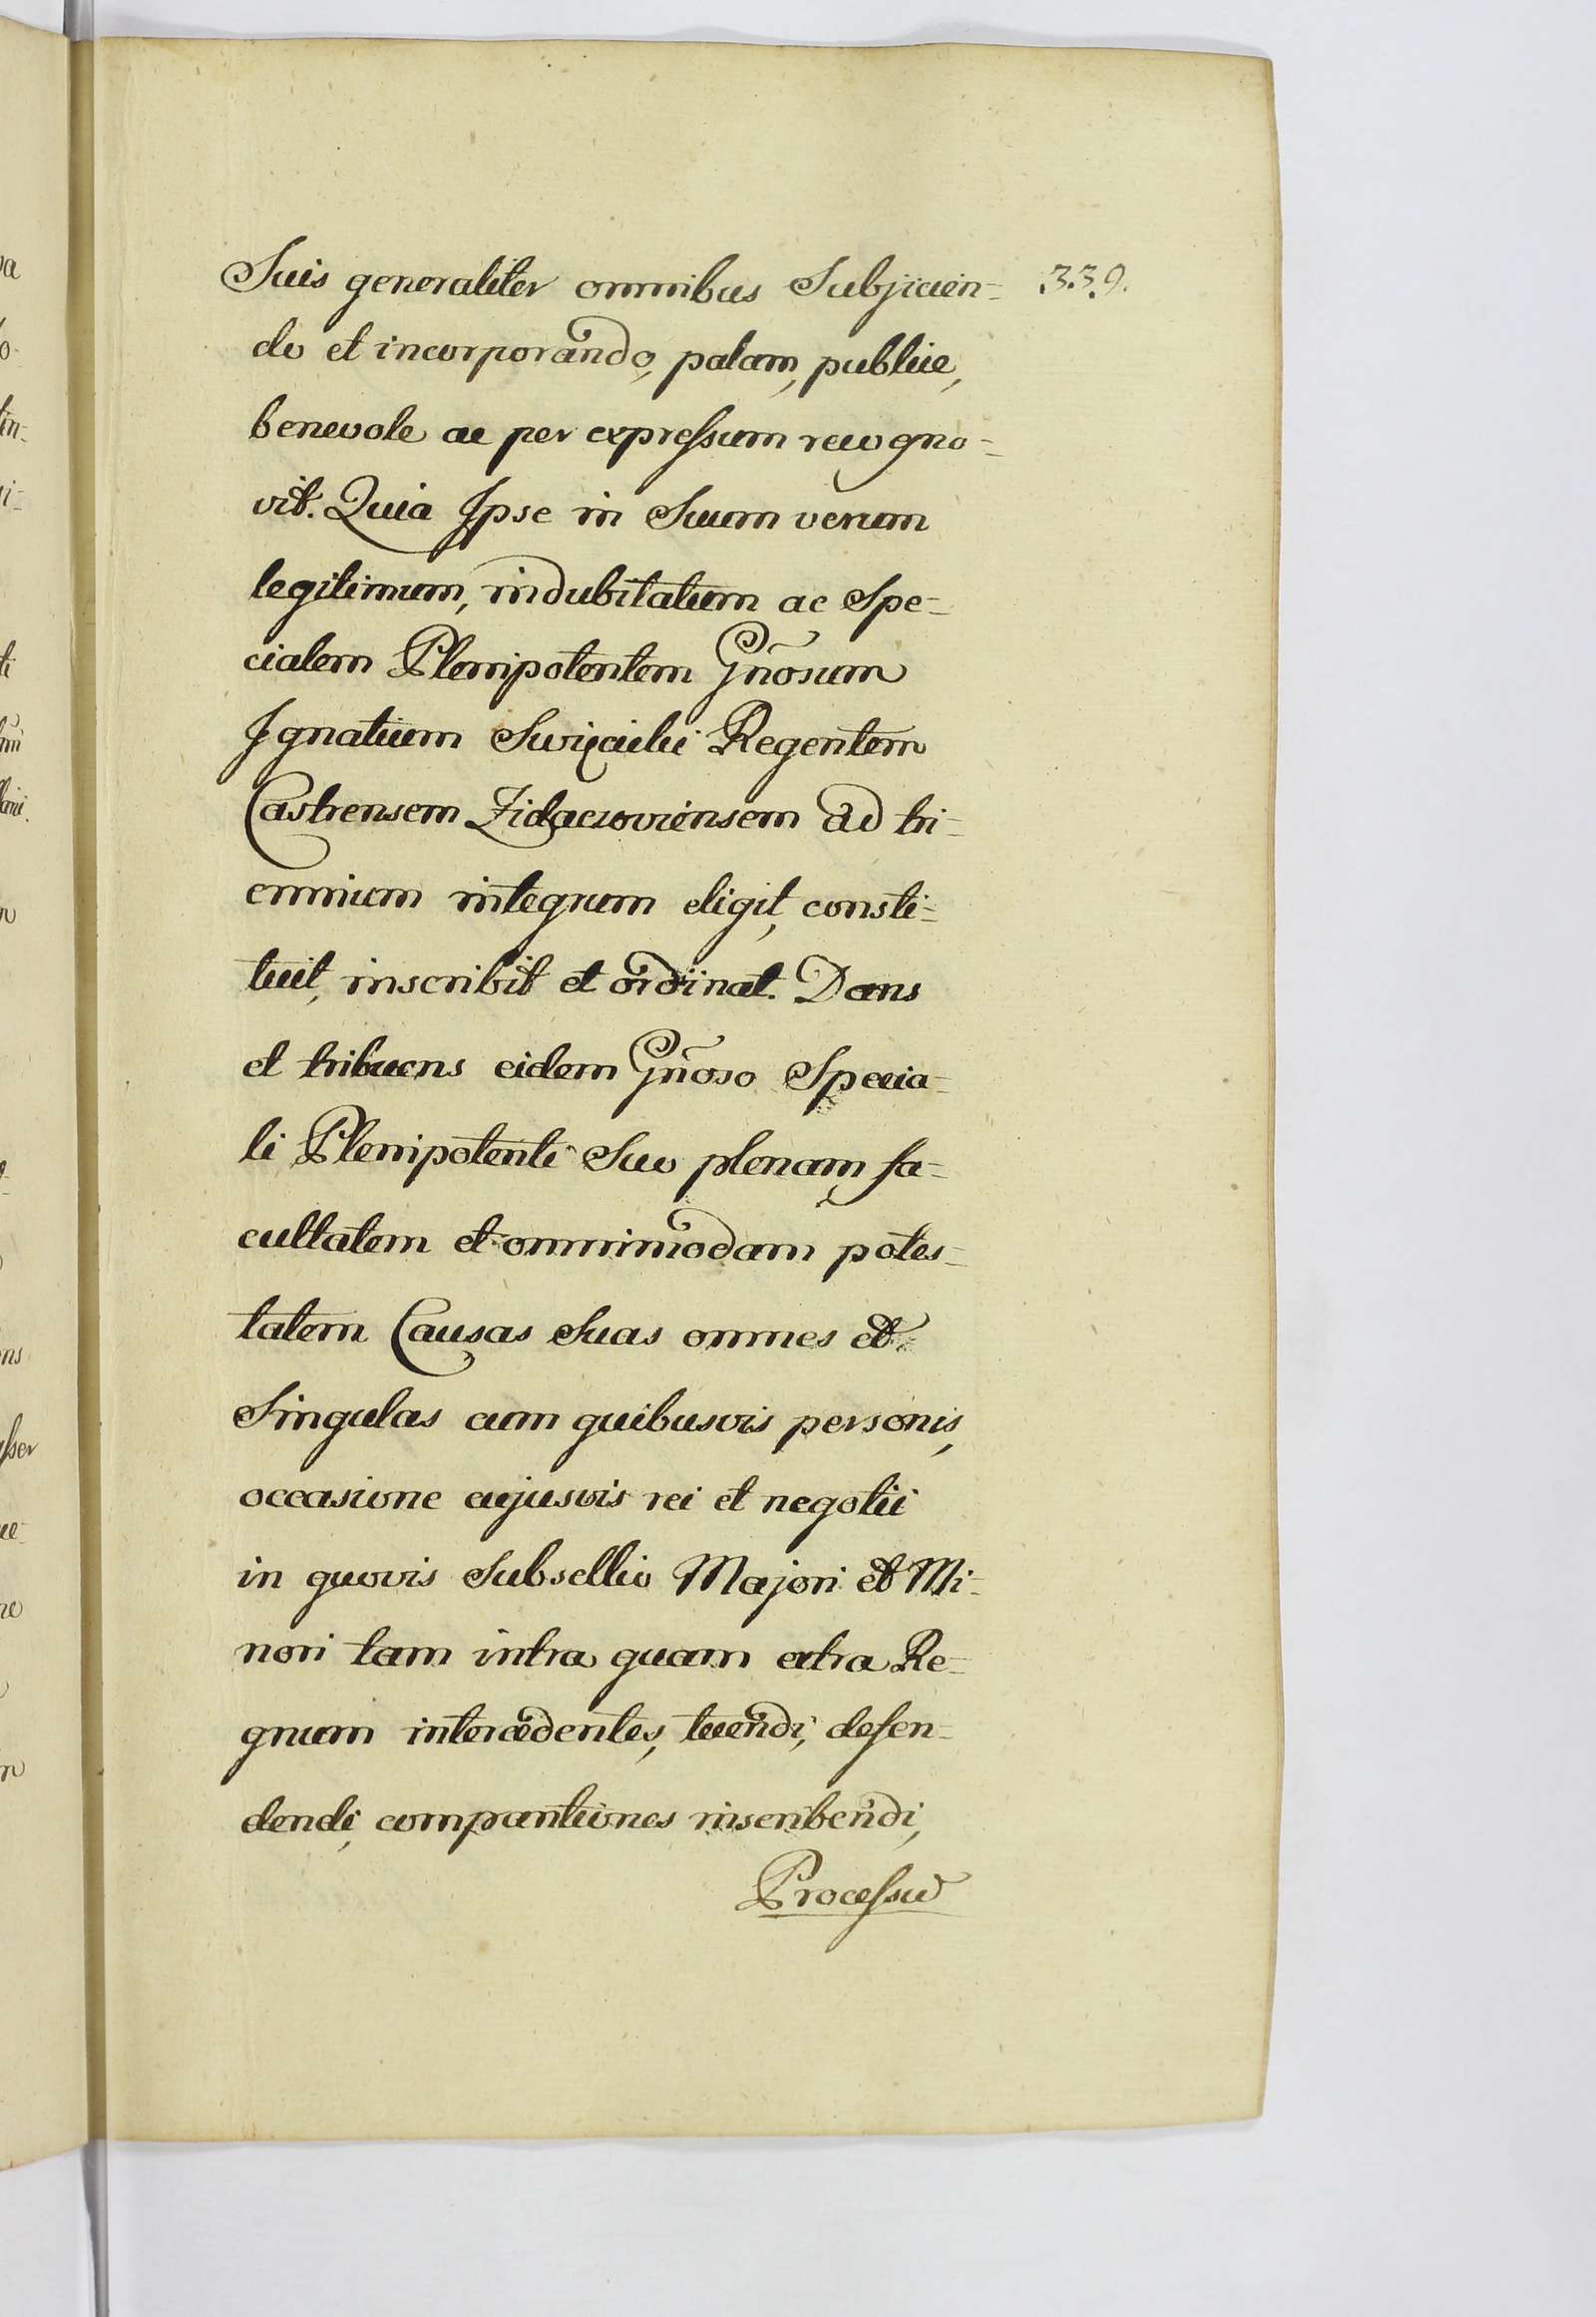 Suis generaliter omnibus Subjicien= 339.
do et incorporando, palam, publice,
benevole ac per expreſsum recogno=
vit. Quia Ipse in Suum verum
legitimum, indubitatum ac Spe=
cialem Plenipotentem Gñosum
Ignatium Regentem
Castrensem ad tri=
ennium integrum eligit, consti=
tuit, inscribit et ordinat. Dans
et tribuens eidem Gñoso Specia=
li Plenipotenti Suo plenam fa=
cultatem et omnimodam potes=
tatem Causas Suas omnes et
Singulas cum quibusvis personis,
occasione cujusvis rei et negotii
in quovis Subsellio Majori et Mi=
nori tam intra quam extra Re=
gnum intercedentes, tuendi, defen=
dendi, comparitiones inscribendi,
Proceſsus